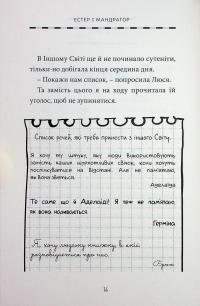 ЕСТЕР І МАНДРАГОР
В Іншому Світі ще й не починало сутеніти,
тільки-но добігала кінця середина дня.
– Покажи нам список, – попросила Люся.
Та замість цього я на ходу прочитала їй
уголос, щоб не зупинятися.
Список речей, які треба принести з іншого Світу.
Я хочу ту штуку, яку люди використовують
замість наших кришталевих сфер, коли хочуть
поспілкуватися на відстані. Але не пам'ятаю,
як вона зветься.
Аделаїда
Те саме що й Аделаїді! Я теж не пам'ятаю
як воно називається.
Герміна
Я хочу людську книжку, в якій
розповідається про них.
14